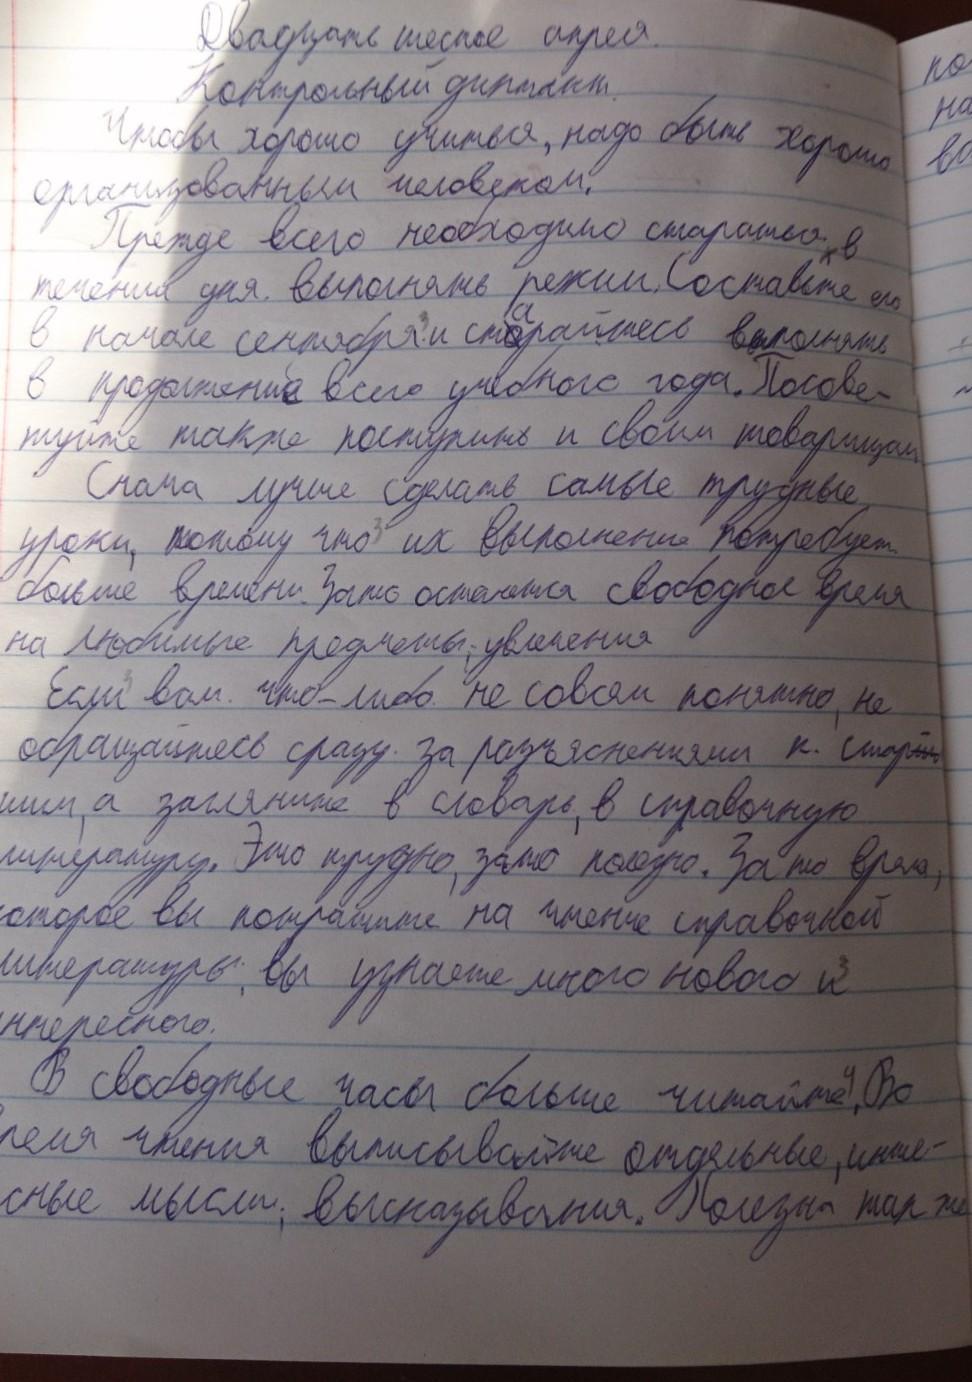 Двадцать шестое апреля.
Контрольный диктант.
Чтобы хорошо учиться, надо быть хорошо
организованным человеком.
Прежде всего необходимо стараться в
течении дня выполнять режим. Составьте его
в начале сентября и старайтесь выполнять
в продолжение всего учебного года. Посове-
туйте также поступить и своим товарищам
Снача лучше сделать самые трудные
уроки, потому что их выполнение потребует
больше времени. Зато остаётся свободное время
на любимые предметы, увлечения
Если вам что-либо не совсем понятно, не
обращайтесь сразу за разъяснениями к стар
шим, а загляните в словарь, в справочную
литературу. Это трудно, зато полезно. За то время,
которое вы потратите на чтение справочной
литературы, вы узнаете много нового и
нтересного.
В свободные часы больше читайте. Во
ремя чтения выписывайте отдельные, инте-
сные мысли, высказывания. Полезно так же
по
на
во